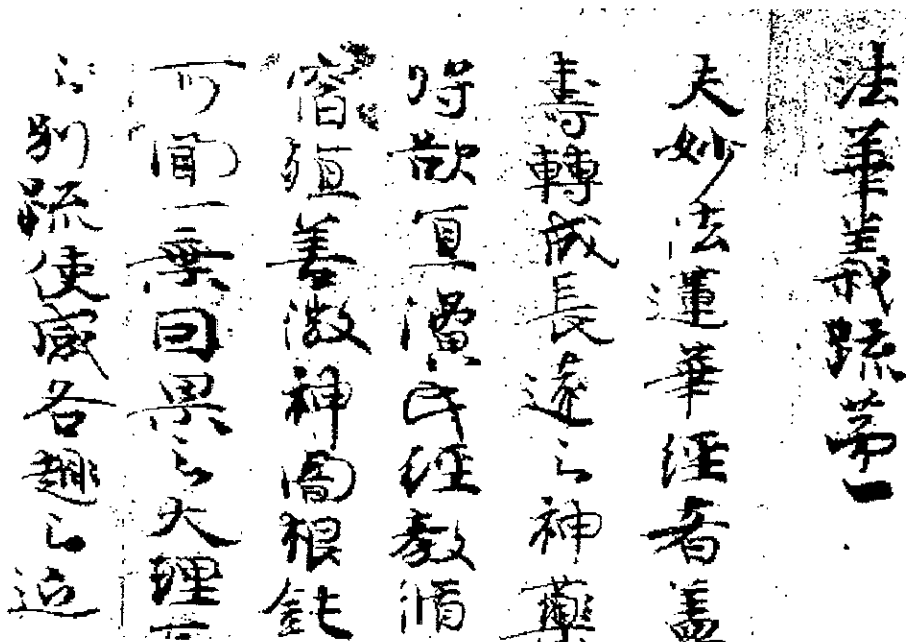 法華義疏第一
夫妙法蓮華經者蓋
壽轉成長遠之神藥
将欲宣演此経教脩
宿殖善微神闇根鈍
可聞一乗因果之大理
之別疏使感各趣之近